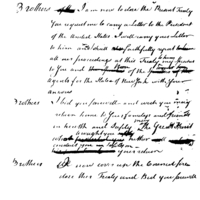 Brothers I am now to close the Present Treaty
You request me to carry a letter to the President
of the United States I will carry your letter
to him and shall faithfully report
all our proceedings at this Treaty
to you and
agents for the State of New York with you
Brothers I bid you farewell and wish you may
return home to your families and friends
in health and safety The Great Spirit
brought you
conduct you in safety
Brothers I now cover up the Council fire
close this Treaty and bid you farewell